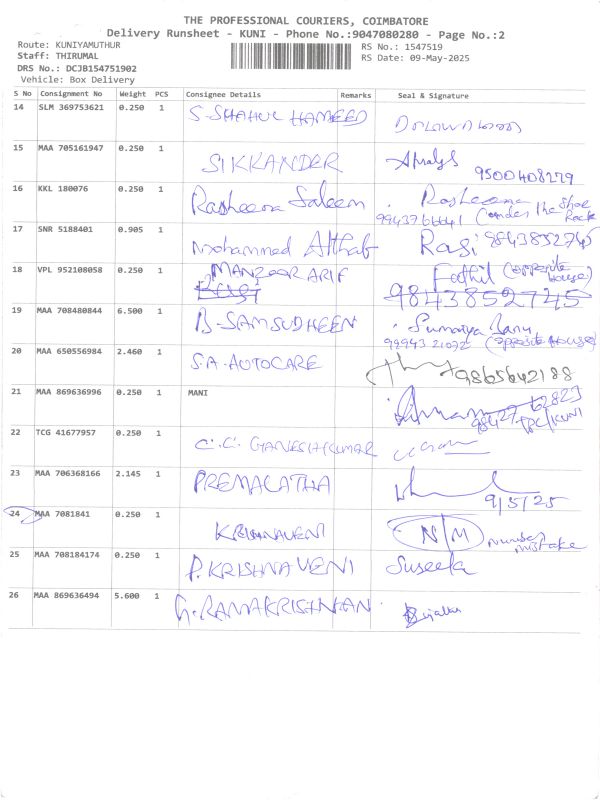 THE PROFESSIONAL COURIERS, COIMBATORE
Delivery Runsheet - KUNI - Phone No.:9047080280 - Page No.:2
Route: KUNIYAMUTHUR
RS No.: 1547519
Staff: THIRUMAL
RS Date: 09-May-2025
DRS No.: DCJB154751902
Vehicle: Box Delivery
S No Consignment No Weight PCS Consignee Details Remarks Seal & Signature
14 SLM 369753621 0.250 1 S-SHAHUL HAMEED
15 MAA 705161947 0.250 1 SIKKANDER 9500408279
16 KKL 180076 0.250 1 Rasheena Saleem Rasheena
(under the shoe Rack
17 SNR 5188401 0.905 1 Mohammed Althaf Rasi 9843852745
18 VPL 952108058 0.250 1 MANZOOR ARIF Fadhil (opposite house)
9843852745
19 MAA 708480844 6.500 1 B-SAMSUDHEEN Sumaiya Banu
9994321072 (opposite house)
20 MAA 650556984 2.460 1 S.A-AUTOCARE 9865642188
21 MAA 869636996 0.250 1 MANI
98427 62823
TPC/KUNI
22 TCG 41677957 0.250 1 C.C. GANESHKUMAR
23 MAA 706368166 2.145 1 PREMALATHA
9/5/25
24 MAA 7081841 0.250 1 KRISHNAVENI N/M number mistake
25 MAA 708184174 0.250 1 P.KRISHNAVENI Suseela
26 MAA 869636494 5.600 1 G.RAMAKRISHNAN